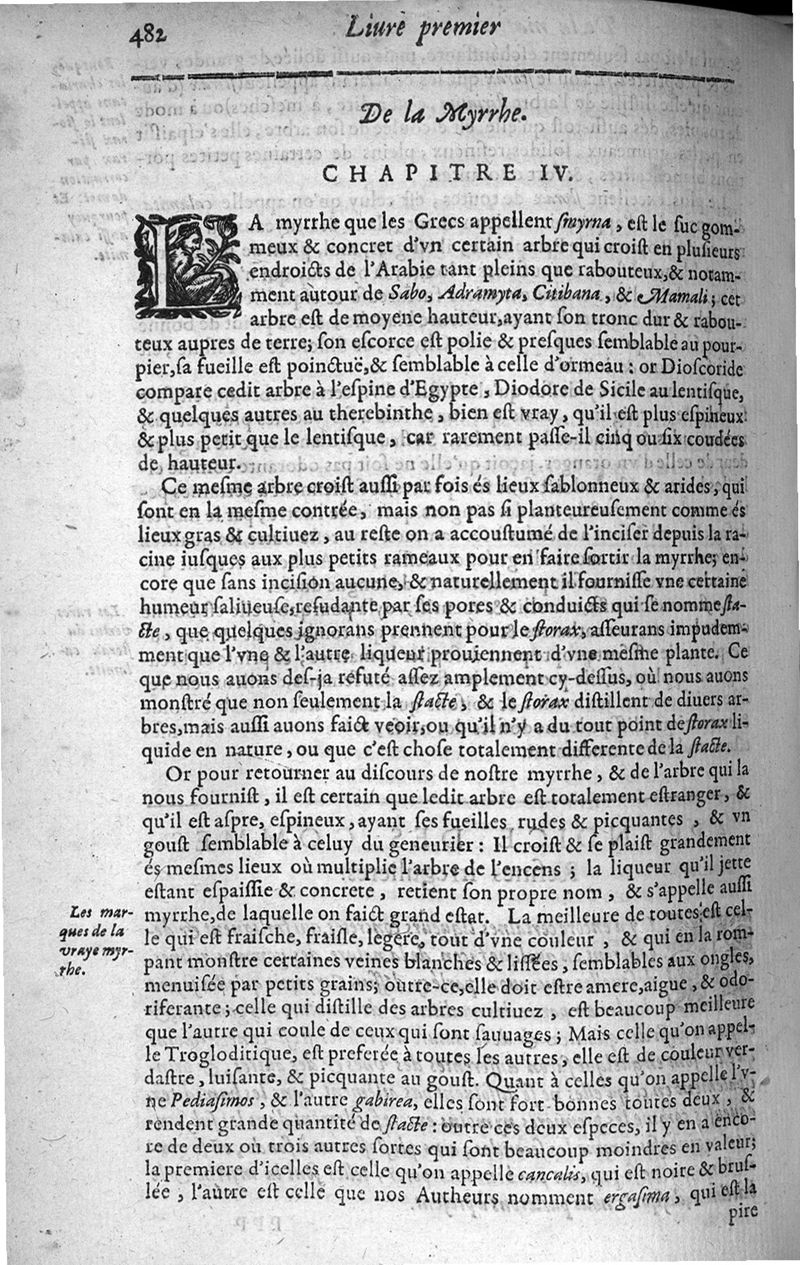 482
Liure premier
De la Myrrhe.
CHAPITRE IV.
LA myrrhe que les Grecs appellent ſmyrna, eſt le ſuc gom-
meux & concret d'vn certain arbre qui croiſt en pluſieurs
endroicts de l'Arabie tant pleins que rabouteux, & notam-
ment autour de Sabo, Adramyta, Citibana, & Mamali; cet
arbre eſt de moyene hauteur, ayant ſon tronc dur & rabou-
teux aupres de terre; ſon eſcorce eſt polie & preſques ſemblable au pour-
pier, ſa fueille eſt poinctuë, & ſemblable à celle d'ormeau: or Dioſcoride
compare cedit arbre à l'eſpine d'Egypte, Diodore de Sicile au lentiſque,
& quelques autres au therebinthe, bien eſt vray, qu'il eſt plus eſpineux
& plus petit que le lentiſque, car rarement paſſe-il cinq ou ſix coudées
de hauteur.
Ce meſme arbre croiſt auſſi par fois és lieux ſablonneux & arides, qui
ſont en la meſme contrée, mais non pas ſi planteureuſement comme és
lieux gras & cultiuez, au reſte on a accouſtumé de l'inciſer depuis la ra-
cine iuſques aux plus petits rameaux pour en faire ſortir la myrrhe; en-
core que ſans inciſion aucune, & naturellement il fourniſſe vne certaine
humeur ſaliueuſe, reſudante par ſes pores & conduicts qui ſe nomme ſta-
cte, que quelques ignorans prennent pour le ſtorax, aſſeurans impudem-
ment que l'vne & l'autre liqueur prouiennent d'vne meſme plante. Ce
que nous auons deſ-ja refuté aſſez amplement cy-deſſus, où nous auons
monſtré que non ſeulement la ſtacte, & le ſtorax diſtillent de diuers ar-
bres, mais auſſi auons faict veoir, ou qu'il n'y a du tout point de ſtorax li-
quide en nature, ou que c'eſt choſe totalement differente de la ſtacte.
Or pour retourner au diſcours de noſtre myrrhe, & de l'arbre qui la
nous fourniſt, il eſt certain que ledit arbre eſt totalement eſtranger, &
qu'il eſt aſpre, eſpineux, ayant ſes fueilles rudes & picquantes, & vn
gouſt ſemblable à celuy du geneurier: Il croiſt & ſe plaiſt grandement
és meſmes lieux où multiplie l'arbre de l'encens; la liqueur qu'il jette
eſtant eſpaiſſie & concrete, retient ſon propre nom, & s'appelle auſſi
myrrhe, de laquelle on faict grand eſtat. La meilleure de toutes eſt cel-
le qui eſt fraiſche, fraiſle, legere, tout d'vne couleur, & qui en la rom-
pant monſtre certaines veines blanches & liſſées, ſemblables aux ongles,
menuiſée par petits grains; outre-ce, elle doit eſtre amere, aigue, & odo-
riferante; celle qui diſtille des arbres cultiuez, eſt beaucoup meilleure
que l'autre qui coule de ceux qui ſont ſauuages; Mais celle qu'on appel-
le Trogloditique, eſt preferée à toutes les autres, elle eſt de couleur ver-
daſtre, luiſante, & picquante au gouſt. Quant à celles qu'on appelle l'v-
ne Pediaſimos, & l'autre gabirea, elles ſont fort bonnes toutes deux, &
rendent grande quantité de ſtacte: outre ces deux eſpeces, il y en a enco-
re de deux ou trois autres ſortes qui ſont beaucoup moindres en valeur;
la premiere d'icelles eſt celle qu'on appelle cancalis, qui eſt noire & bruſ-
lée, l'autre eſt celle que nos Autheurs nomment ergaſima, qui eſt la
pire
Les mar-
ques de la
vraye myr-
rhe.